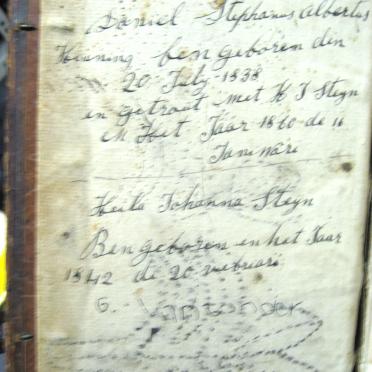 Daniel Stephanus Albertus
Henning ben geboren den
20 July 1838
en getrout met H J Steyn
in Het Jaar 1860 de 11
Januari
Heila Johanna Steyn
Ben geboren en het Jaar
1842 de 20 vebruari
6.